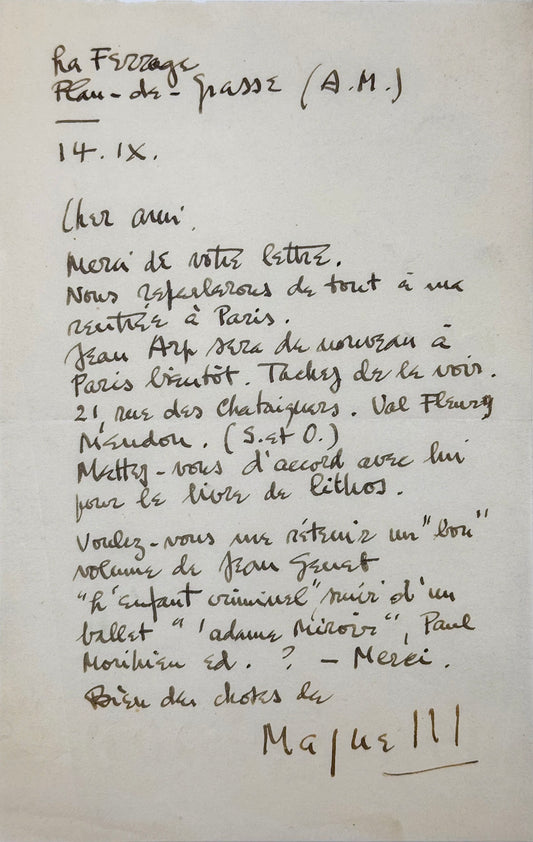 La Ferrage
Plan-de-Grasse (A.M.)
14.IX.
Cher ami,
Merci de votre lettre.
Nous reparlerons de tout à ma
rentrée à Paris.
Jean Arp sera de nouveau à
Paris bientôt. Tachez de le voir.
21, rue des Chataigners. Val Fleury
Meudon. (S. et O.)
Mettez-vous d'accord avec lui
pour le livre de lithos.
Voulez-vous me rétenir un "bon"
volume de Jean Genet
"L'Enfant criminel" suivi d'un
ballet " 'adame Miroir", Paul
Morihien ed. ? — Merci.
Bien des choses de
Magnelli